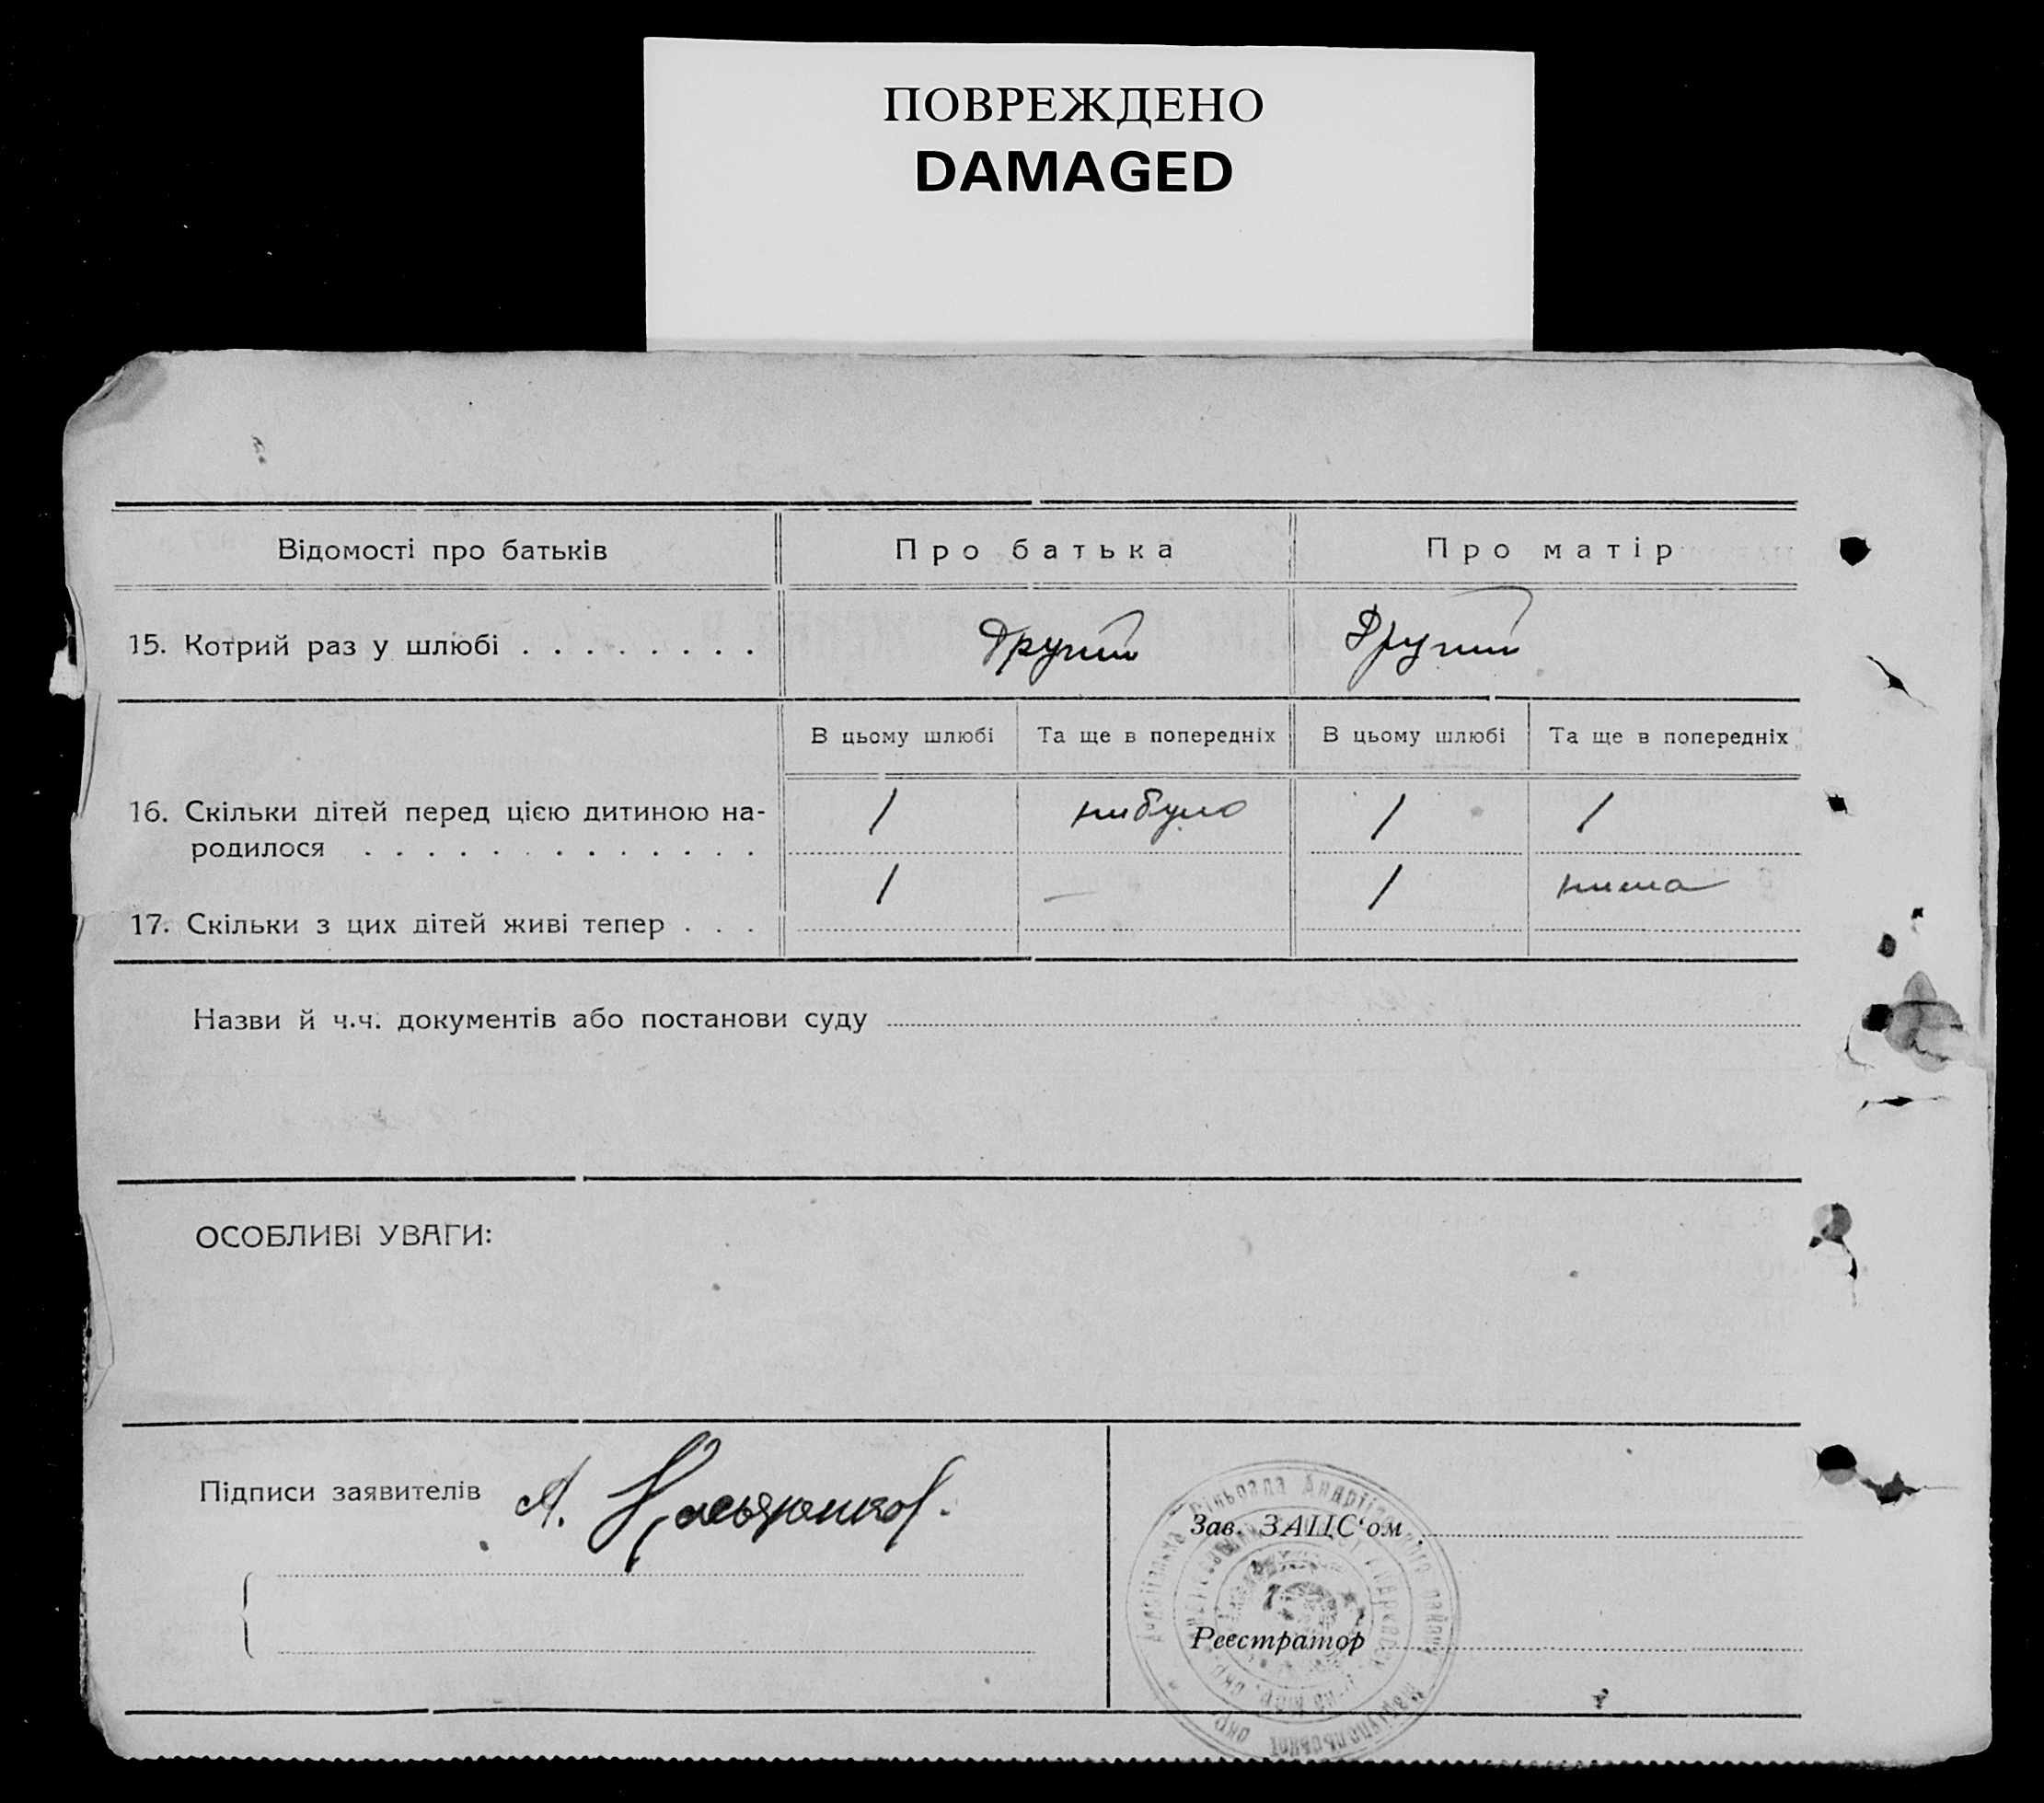 ПОВРЕЖДЕНО
DAMAGED
Відомості про батьків
Про батька
Про матір
15. Котрий раз у шлюбі . . . . . . . .
Другий
Другий
В цьому шлюбі
Та ще в попередніх
В цьому шлюбі
Та ще в попередніх
16. Скільки дітей перед цією дитиною на-
родилося . . . . . . . . . . . . .
1
небуло
1
1
17. Скільки з цих дітей живі тепер . . .
1
—
1
нема
Назви й ч.ч. документів або постанови суду
ОСОБЛИВІ УВАГИ:
Підписи заявителів
А.
Зав. ЗАЦС‘ом
Реєстратор